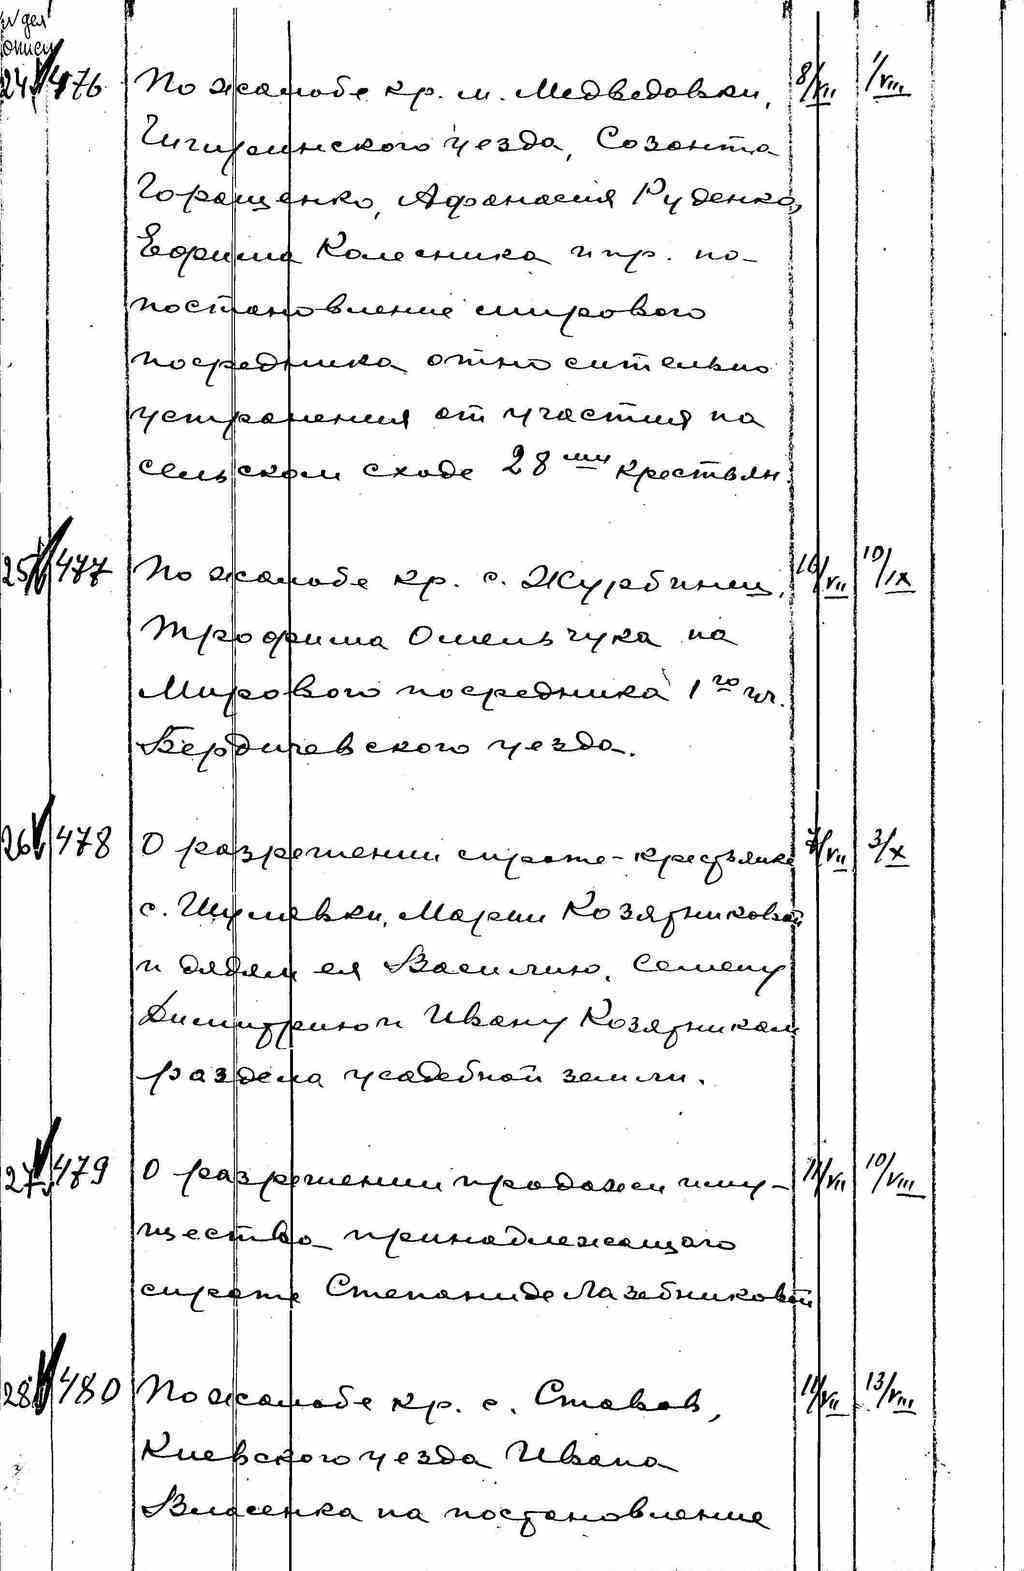 № дел
описи
24 476 По жалобе кр. м. Медведовки, 8/VII 1/VIII
Чигиринского уезда, Созонта
Горащенко, Афанасия Руденко,
Ефима Колесника и пр. по-
постановление мирового
посредника относительно
устранения от участия на
сельском сходе 28 ми крестьян.
25 477 По жалобе кр. с. Журбинец, 16/VII 10/IX
Трофима Омельчука на
Мирового посредника 1го уч.
Бердичевского уезда.
26 478 О разрешении сироте-крестьянке 7/VII 3/X
с. Шулявки, Марии Козятниковой
и дядям ея Василию, Семену
Димитрию и Ивану Козятникам
раздела усадебной земли.
27 479 О разрешении продажи иму- 11/VII 10/VIII
щества принадлежащого
сироте Степаниде Лазебниковой
28 480 По жалобе кр. с. Ставов, 11/VII 13/VIII
Киевского уезда Ивана
Власенка на постановление